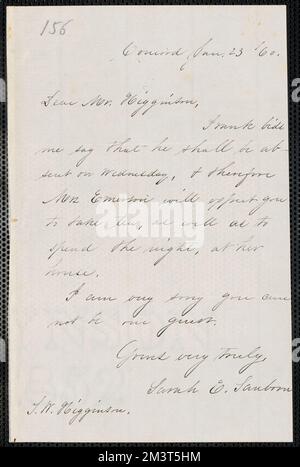 156
Concord, Jan. 23 '60.
Dear Mr. Higginson,
Frank bids
me say that he shall be ab-
sent on Wednesday, & therefore
Mrs. Emerson will expect you
to take tea, as well as to
spend the night, at her
house.
I am very sorry you can
not be our guest.
Yours very truly,
Sarah E. Sanborn
T. W. Higginson.
alamy
Image ID: 2M3T5HM
www.alamy.com